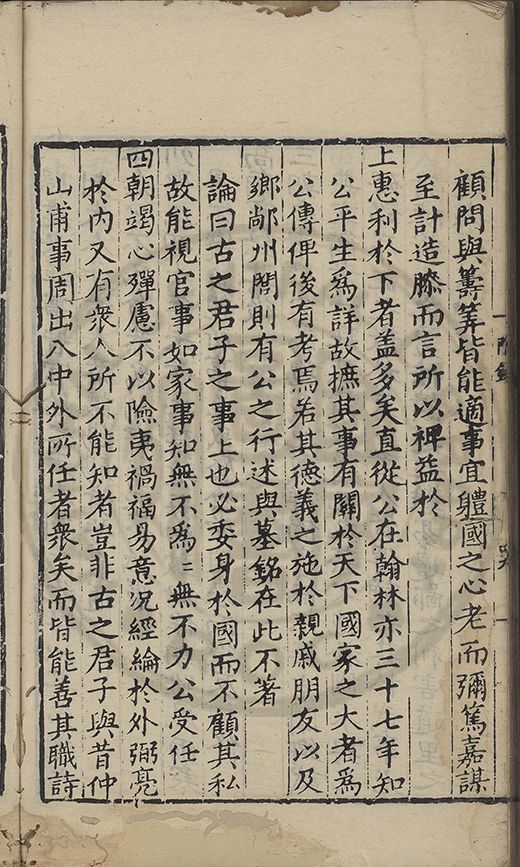 顧問與籌筭皆能適事宜軆國之心老而彌篤嘉謀
至計造膝而言所以裨益於
上惠利於下者盖多矣直從公在翰林亦三十七年知
公平生爲詳故摭其事有關於天下國家之大者爲
公傳俾後有考焉若其德義之施於親戚朋友以及
鄉鄰州閭則有公之行述與墓銘在此不著
論曰古之君子之事上也必委身於國而不顧其私
故能視官事如家事知無不爲〻無不力公受任
四朝竭心殫慮不以險夷禍福易意況經綸於外弼亮
於内又有衆人所不能知者豈非古之君子與昔仲
山甫事周出入中外所任者衆矣而皆能善其職詩